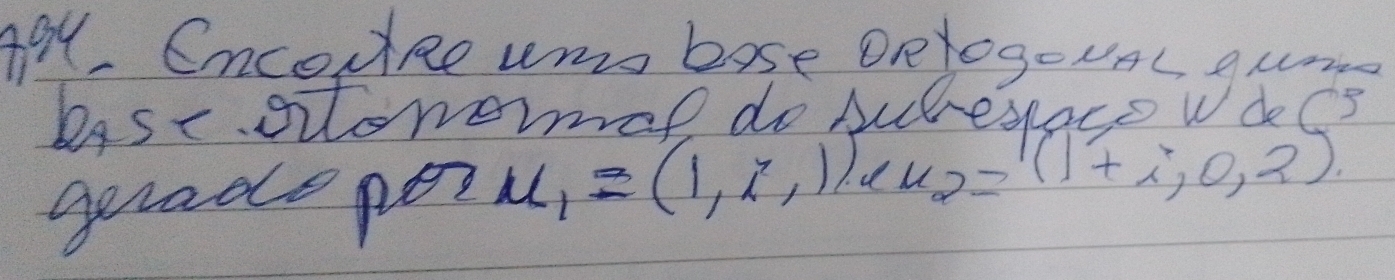 7.94- Encontre uma base ORtogoNAL e uma
bAse ortonormal do subespaço W de C³
gerado por u₁ = (1, i, 1) e u₂ = (1 + i, 0, 2).